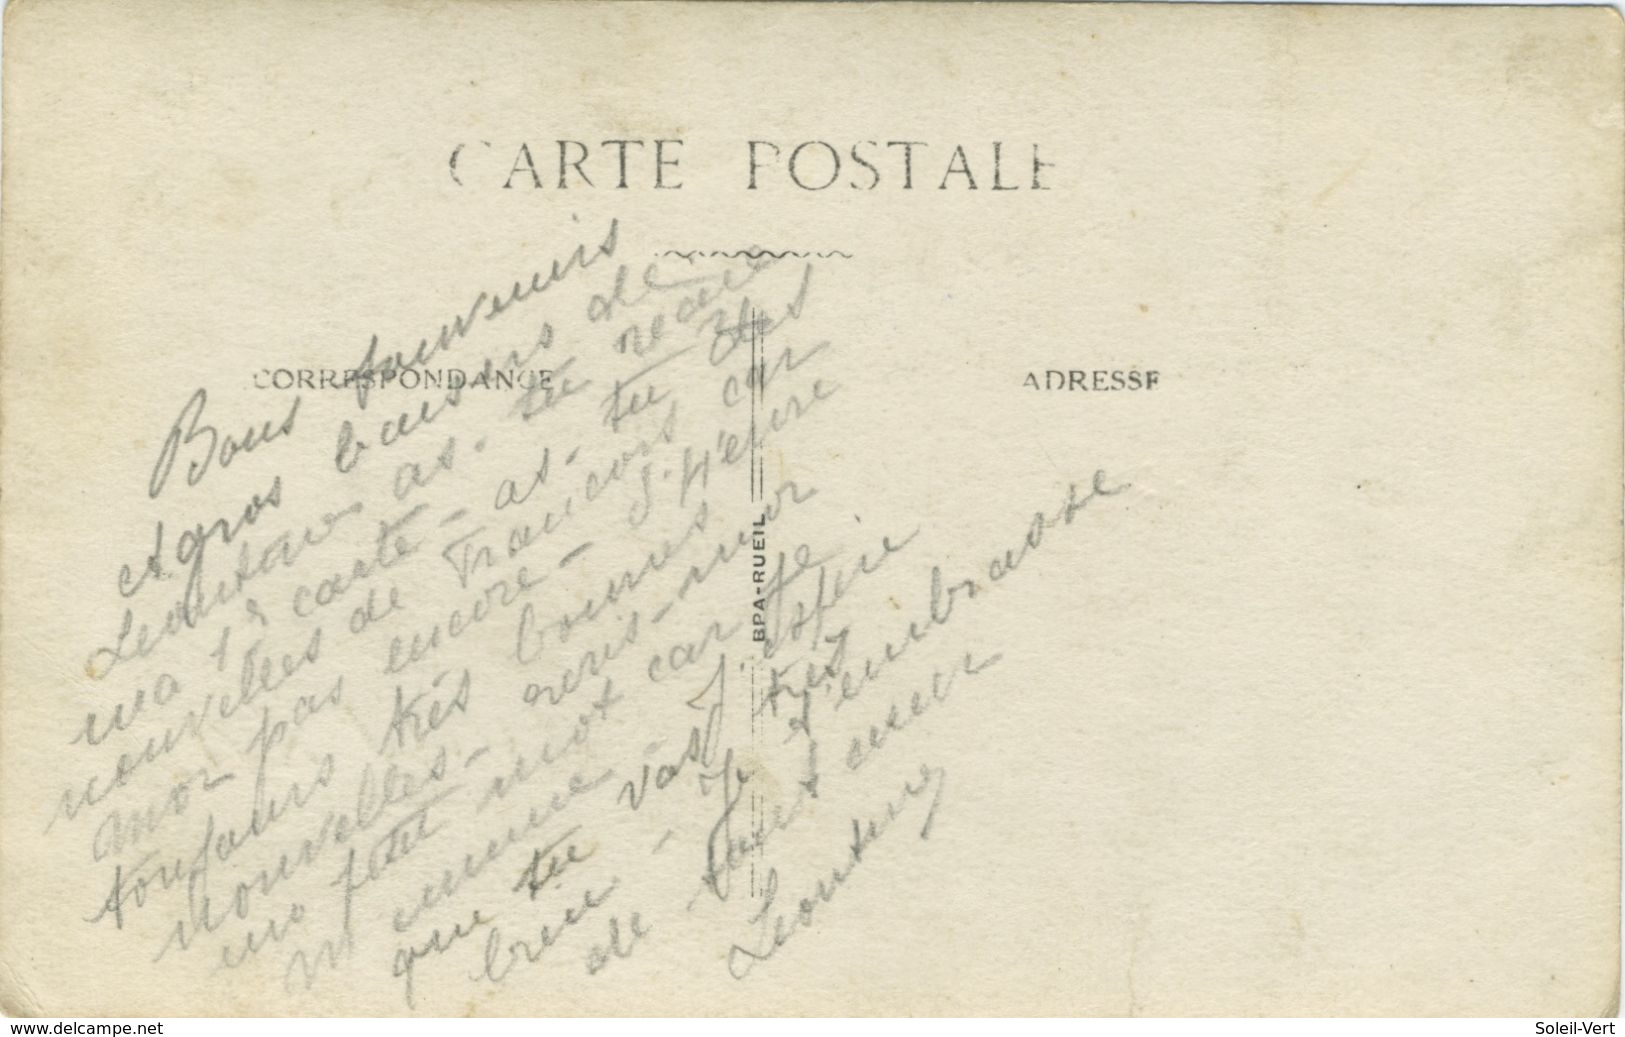 CARTE POSTALE
CORRESPONDANCE
ADRESSE
BPA-RUEIL
Bons souvenirs
et gros baisers de
Leontine as-tu
ma 1e carte - as-tu des
nouvelles de car
moi pas encore -
toujours très bonnes
nouvelles - moi
un petit mot car je
m'ennuie - J'espère
que tu vas très
bien - Je t'embrasse
de tout cœur
Leontine
www.delcampe.net
Soleil-Vert